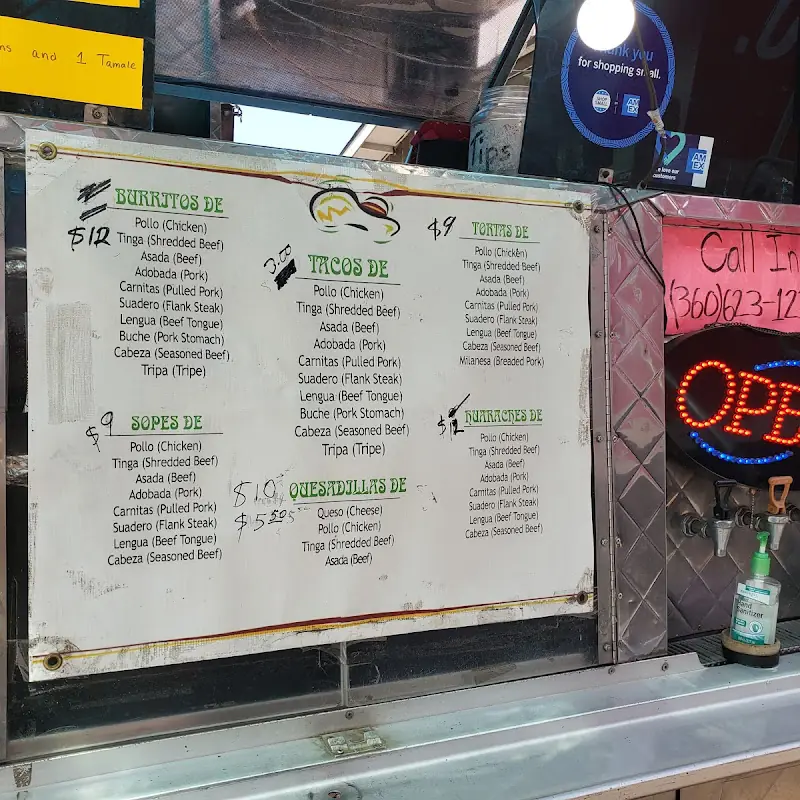 ns and 1 Tamale
Thank you
for shopping small.
SHOP
SMALL
AM
EX
love our
customers
AM
EX
Tips
BURRITOS DE
$12
Pollo (Chicken)
Tinga (Shredded Beef)
Asada (Beef)
Adobada (Pork)
Carnitas (Pulled Pork)
Suadero (Flank Steak)
Lengua (Beef Tongue)
Buche (Pork Stomach)
Cabeza (Seasoned Beef)
Tripa (Tripe)
$9 SOPES DE
Pollo (Chicken)
Tinga (Shredded Beef)
Asada (Beef)
Adobada (Pork)
Carnitas (Pulled Pork)
Suadero (Flank Steak)
Lengua (Beef Tongue)
Cabeza (Seasoned Beef)
3.00 TACOS DE
Pollo (Chicken)
Tinga (Shredded Beef)
Asada (Beef)
Adobada (Pork)
Carnitas (Pulled Pork)
Suadero (Flank Steak)
Lengua (Beef Tongue)
Buche (Pork Stomach)
Cabeza (Seasoned Beef)
Tripa (Tripe)
$10 QUESADILLAS DE
$5.50
Queso (Cheese)
Pollo (Chicken)
Tinga (Shredded Beef)
Asada (Beef)
$9 TORTAS DE
Pollo (Chicken)
Tinga (Shredded Beef)
Asada (Beef)
Adobada (Pork)
Carnitas (Pulled Pork)
Suadero (Flank Steak)
Lengua (Beef Tongue)
Cabeza (Seasoned Beef)
Milanesa (Breaded Pork)
$12 HUARACHES DE
Pollo (Chicken)
Tinga (Shredded Beef)
Asada (Beef)
Adobada (Pork)
Carnitas (Pulled Pork)
Suadero (Flank Steak)
Lengua (Beef Tongue)
Cabeza (Seasoned Beef)
Call In
(360)623-12
OPE
Hand
Sanitizer